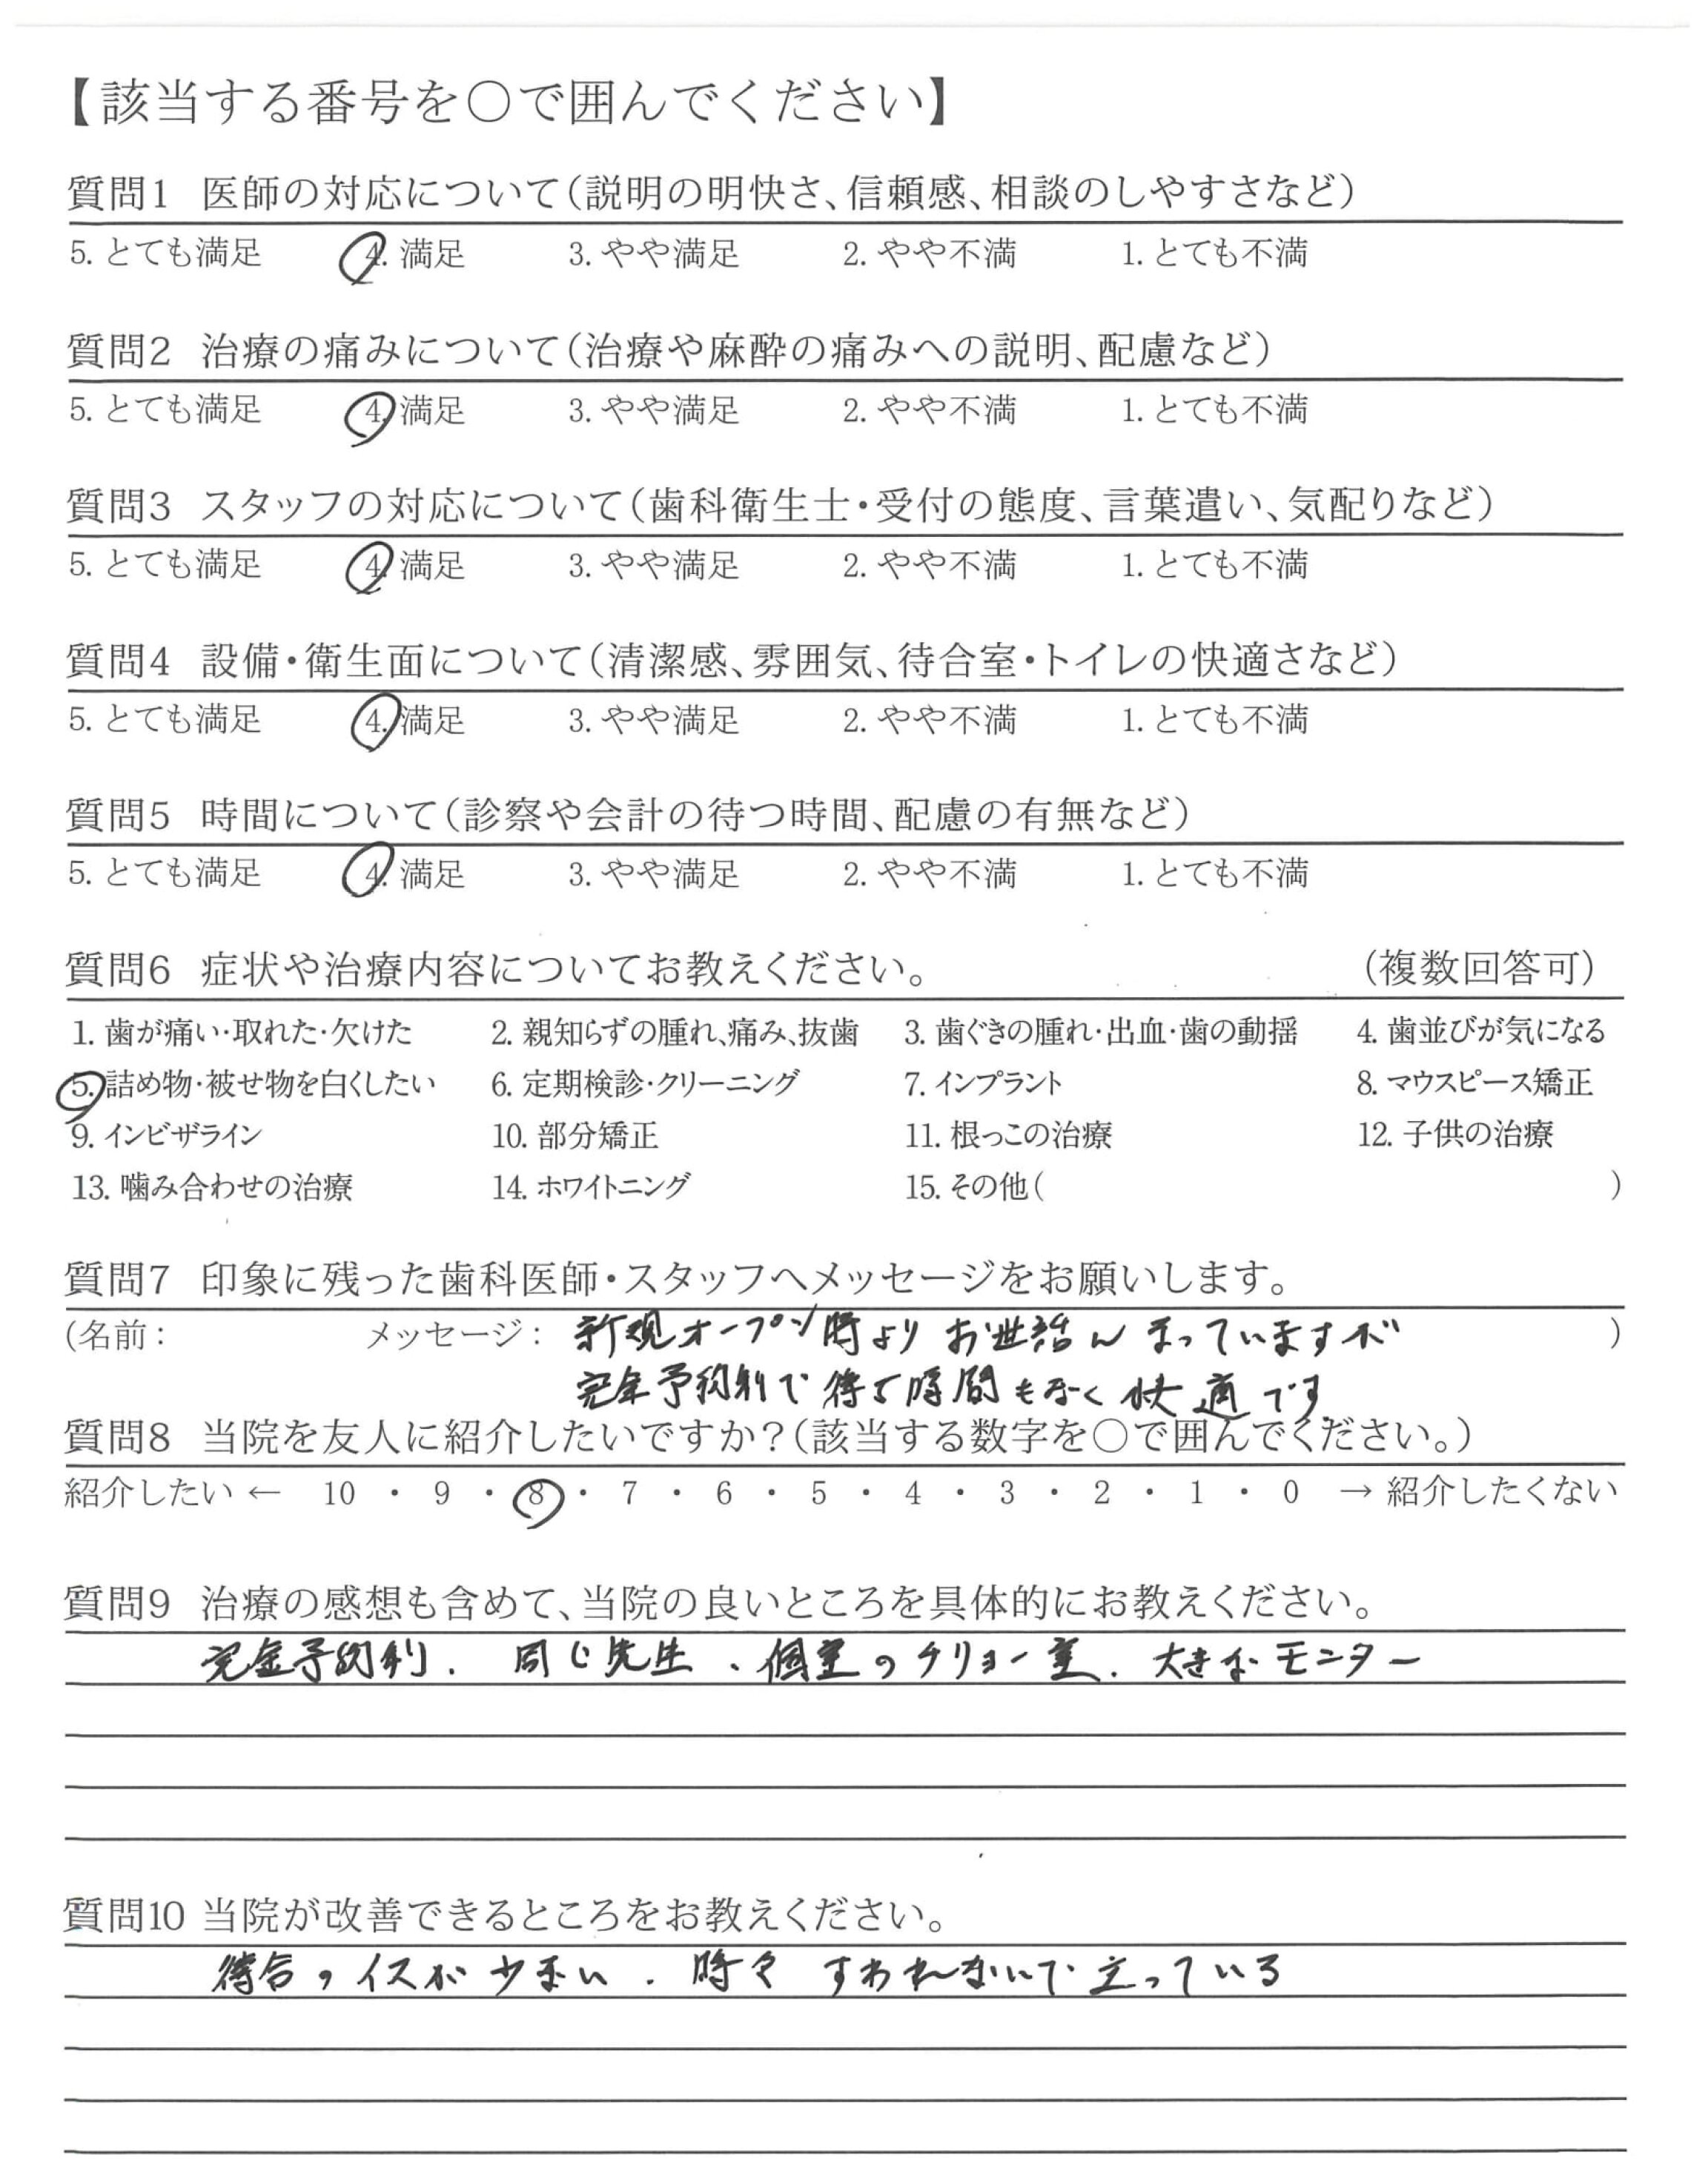 【該当する番号を〇で囲んでください】
質問1 医師の対応について(説明の明快さ、信頼感、相談のしやすさなど)
5. とても満足 4. 満足 3. やや満足 2. やや不満 1. とても不満
質問2 治療の痛みについて(治療や麻酔の痛みへの説明、配慮など)
5. とても満足 4. 満足 3. やや満足 2. やや不満 1. とても不満
質問3 スタッフの対応について(歯科衛生士・受付の態度、言葉遣い、気配りなど)
5. とても満足 4. 満足 3. やや満足 2. やや不満 1. とても不満
質問4 設備・衛生面について(清潔感、雰囲気、待合室・トイレの快適さなど)
5. とても満足 4. 満足 3. やや満足 2. やや不満 1. とても不満
質問5 時間について(診察や会計の待つ時間、配慮の有無など)
5. とても満足 4. 満足 3. やや満足 2. やや不満 1. とても不満
質問6 症状や治療内容についてお教えください。 (複数回答可)
1. 歯が痛い・取れた・欠けた 2. 親知らずの腫れ、痛み、抜歯 3. 歯ぐきの腫れ・出血・歯の動揺 4. 歯並びが気になる
5. 詰め物・被せ物を白くしたい 6. 定期検診・クリーニング 7. インプラント 8. マウスピース矯正
9. インビザライン 10. 部分矯正 11. 根っこの治療 12. 子供の治療
13. 噛み合わせの治療 14. ホワイトニング 15. その他( )
質問7 印象に残った歯科医師・スタッフへメッセージをお願いします。
(名前: メッセージ: 新規オープン時より お世話んなっていますが )
完全予約制で 待つ時間もなく 快適です
質問8 当院を友人に紹介したいですか?(該当する数字を〇で囲んでください。)
紹介したい ← 10 ・ 9 ・ 8 ・ 7 ・ 6 ・ 5 ・ 4 ・ 3 ・ 2 ・ 1 ・ 0 → 紹介したくない
質問9 治療の感想も含めて、当院の良いところを具体的にお教えください。
完全予約制. 同じ先生 、個室のチリョー室. 大きなモニター
質問10 当院が改善できるところをお教えください。
待合のイスが少ない . 時々 すわれないで立っている